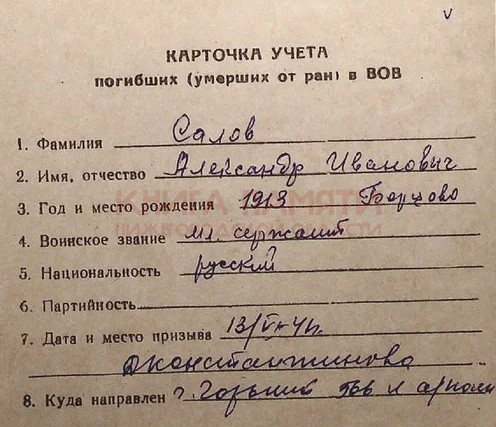 v
КАРТОЧКА УЧЕТА
погибших (умерших от ран) в ВОВ
1. Фамилия Салов
2. Имя, отчество Александр Иванович
КНИГА ПАМЯТИ
3. Год и место рождения 1913 Борцово
4. Воинское звание мл. сержант
5. Национальность русский
6. Партийность
7. Дата и место призыва
Дконстантиново
8. Куда направлен г. Горький